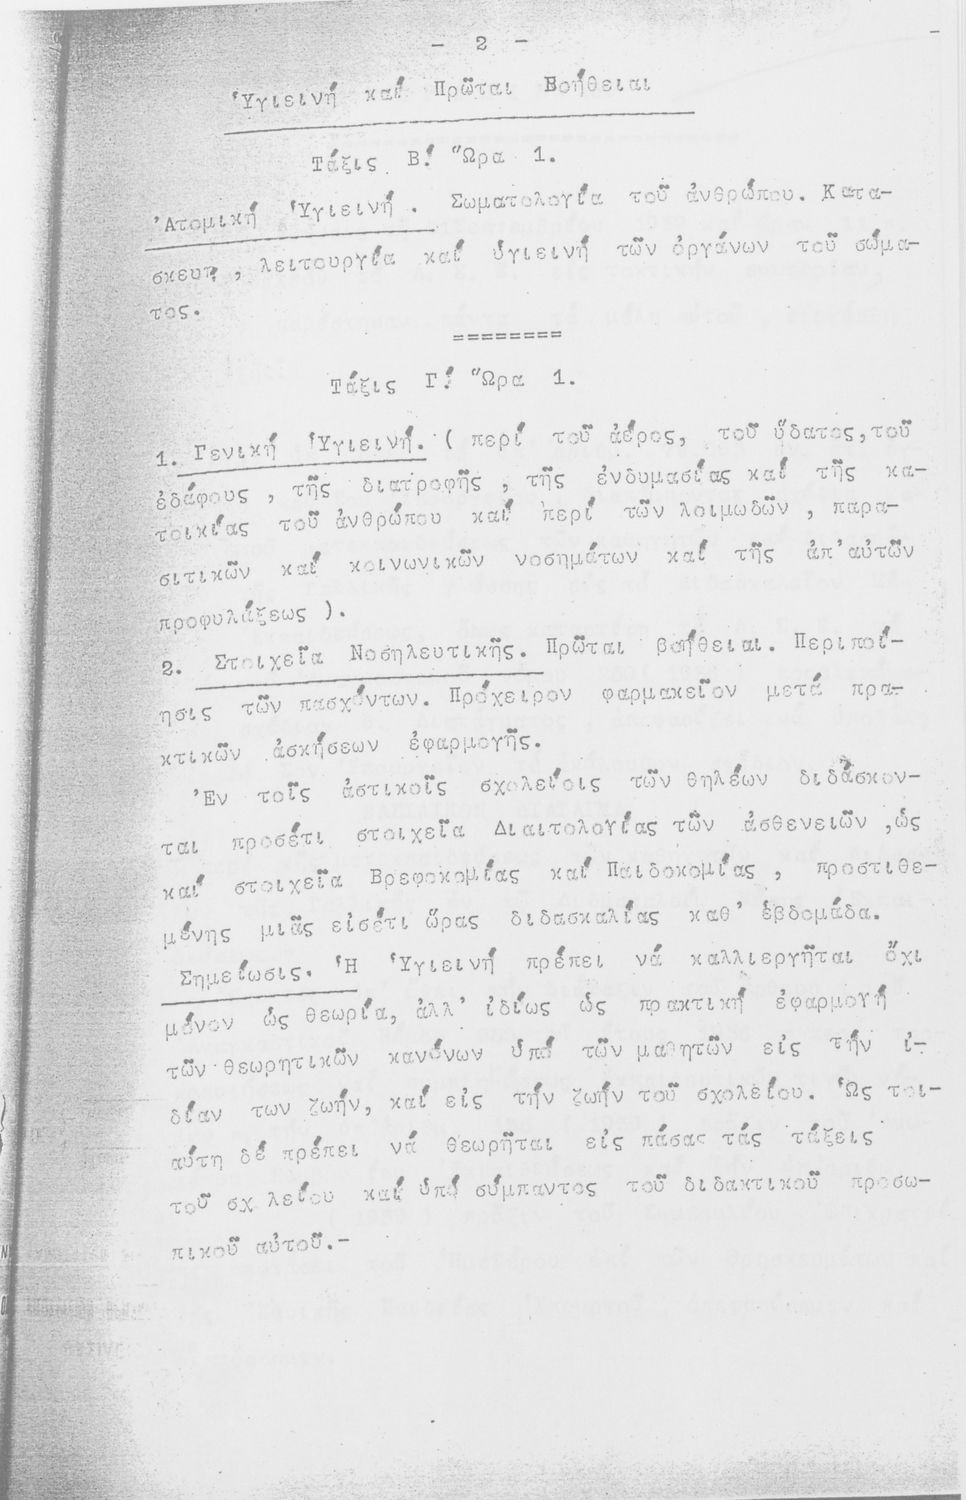 - 2 -
Ὑγιεινή καί Πρῶται Βοήθειαι
Τάξις Β! Ὥρα 1.
Ἀτομική Ὑγιεινή. Σωματολογία τοῦ ἀνθρώπου. Κατα-
σκευη, λειτουργία καί ὑγιεινή τῶν ὀργάνων τοῦ σώμα-
τος.
========
Τάξις Γ! Ὥρα 1.
1. Γενική Ὑγιεινή. ( περί τοῦ ἀέρος, τοῦ ὕδατος, τοῦ
ἐδάφους , τῆς διατροφῆς , τῆς ἐνδυμασίας καί τῆς κα-
τοικίας τοῦ ἀνθρώπου καί περί τῶν λοιμωδῶν , παρα-
σιτικῶν καί κοινωνικῶν νοσημάτων καί τῆς ἀπ'αὐτῶν
προφυλάξεως ).
2. Στοιχεῖα Νοσηλευτικῆς. Πρῶται βοήθειαι. Περιποί-
ησις τῶν πασχόντων. Πρόχειρον φαρμακεῖον μετά πρα-
κτικῶν ἀσκήσεων ἐφαρμογῆς.
Ἐν τοῖς ἀστικοῖς σχολείοις τῶν θηλέων διδάσκον-
ται προσέτι στοιχεῖα Διαιτολογίας τῶν ἀσθενειῶν ,ὡς
καί στοιχεῖα Βρεφοκομίας καί Παιδοκομίας , προστιθε-
μένης μιᾶς εἰσέτι ὥρας διδασκαλίας καθ' ἑβδομάδα.
Σημείωσις. Ἡ Ὑγιεινή πρέπει νά καλλιεργῆται ὄχι
μόνον ὡς θεωρία, ἀλλ' ἰδίως ὡς πρακτική ἐφαρμογή
τῶν θεωρητικῶν κανόνων ὑπό τῶν μαθητῶν εἰς τήν ἰ-
δίαν των ζωήν, καί εἰς τήν ζωήν τοῦ σχολείου. Ὡς τοι-
αύτη δέ πρέπει νά θεωρῆται εἰς πάσας τάς τάξεις
τοῦ σχ λείου καί ὑπό σύμπαντος τοῦ διδακτικοῦ προσω-
πικοῦ αὐτοῦ.-